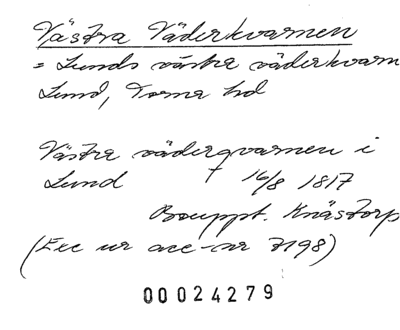 Västra Väderkvarnen
= Lunds västra väderkvarn
Lund, Torna hd
Västra väderqvarnen i
Lund 16/8 1817
Bouppt. Knästorp
(Exc ur acc-nr 7198)
00024279